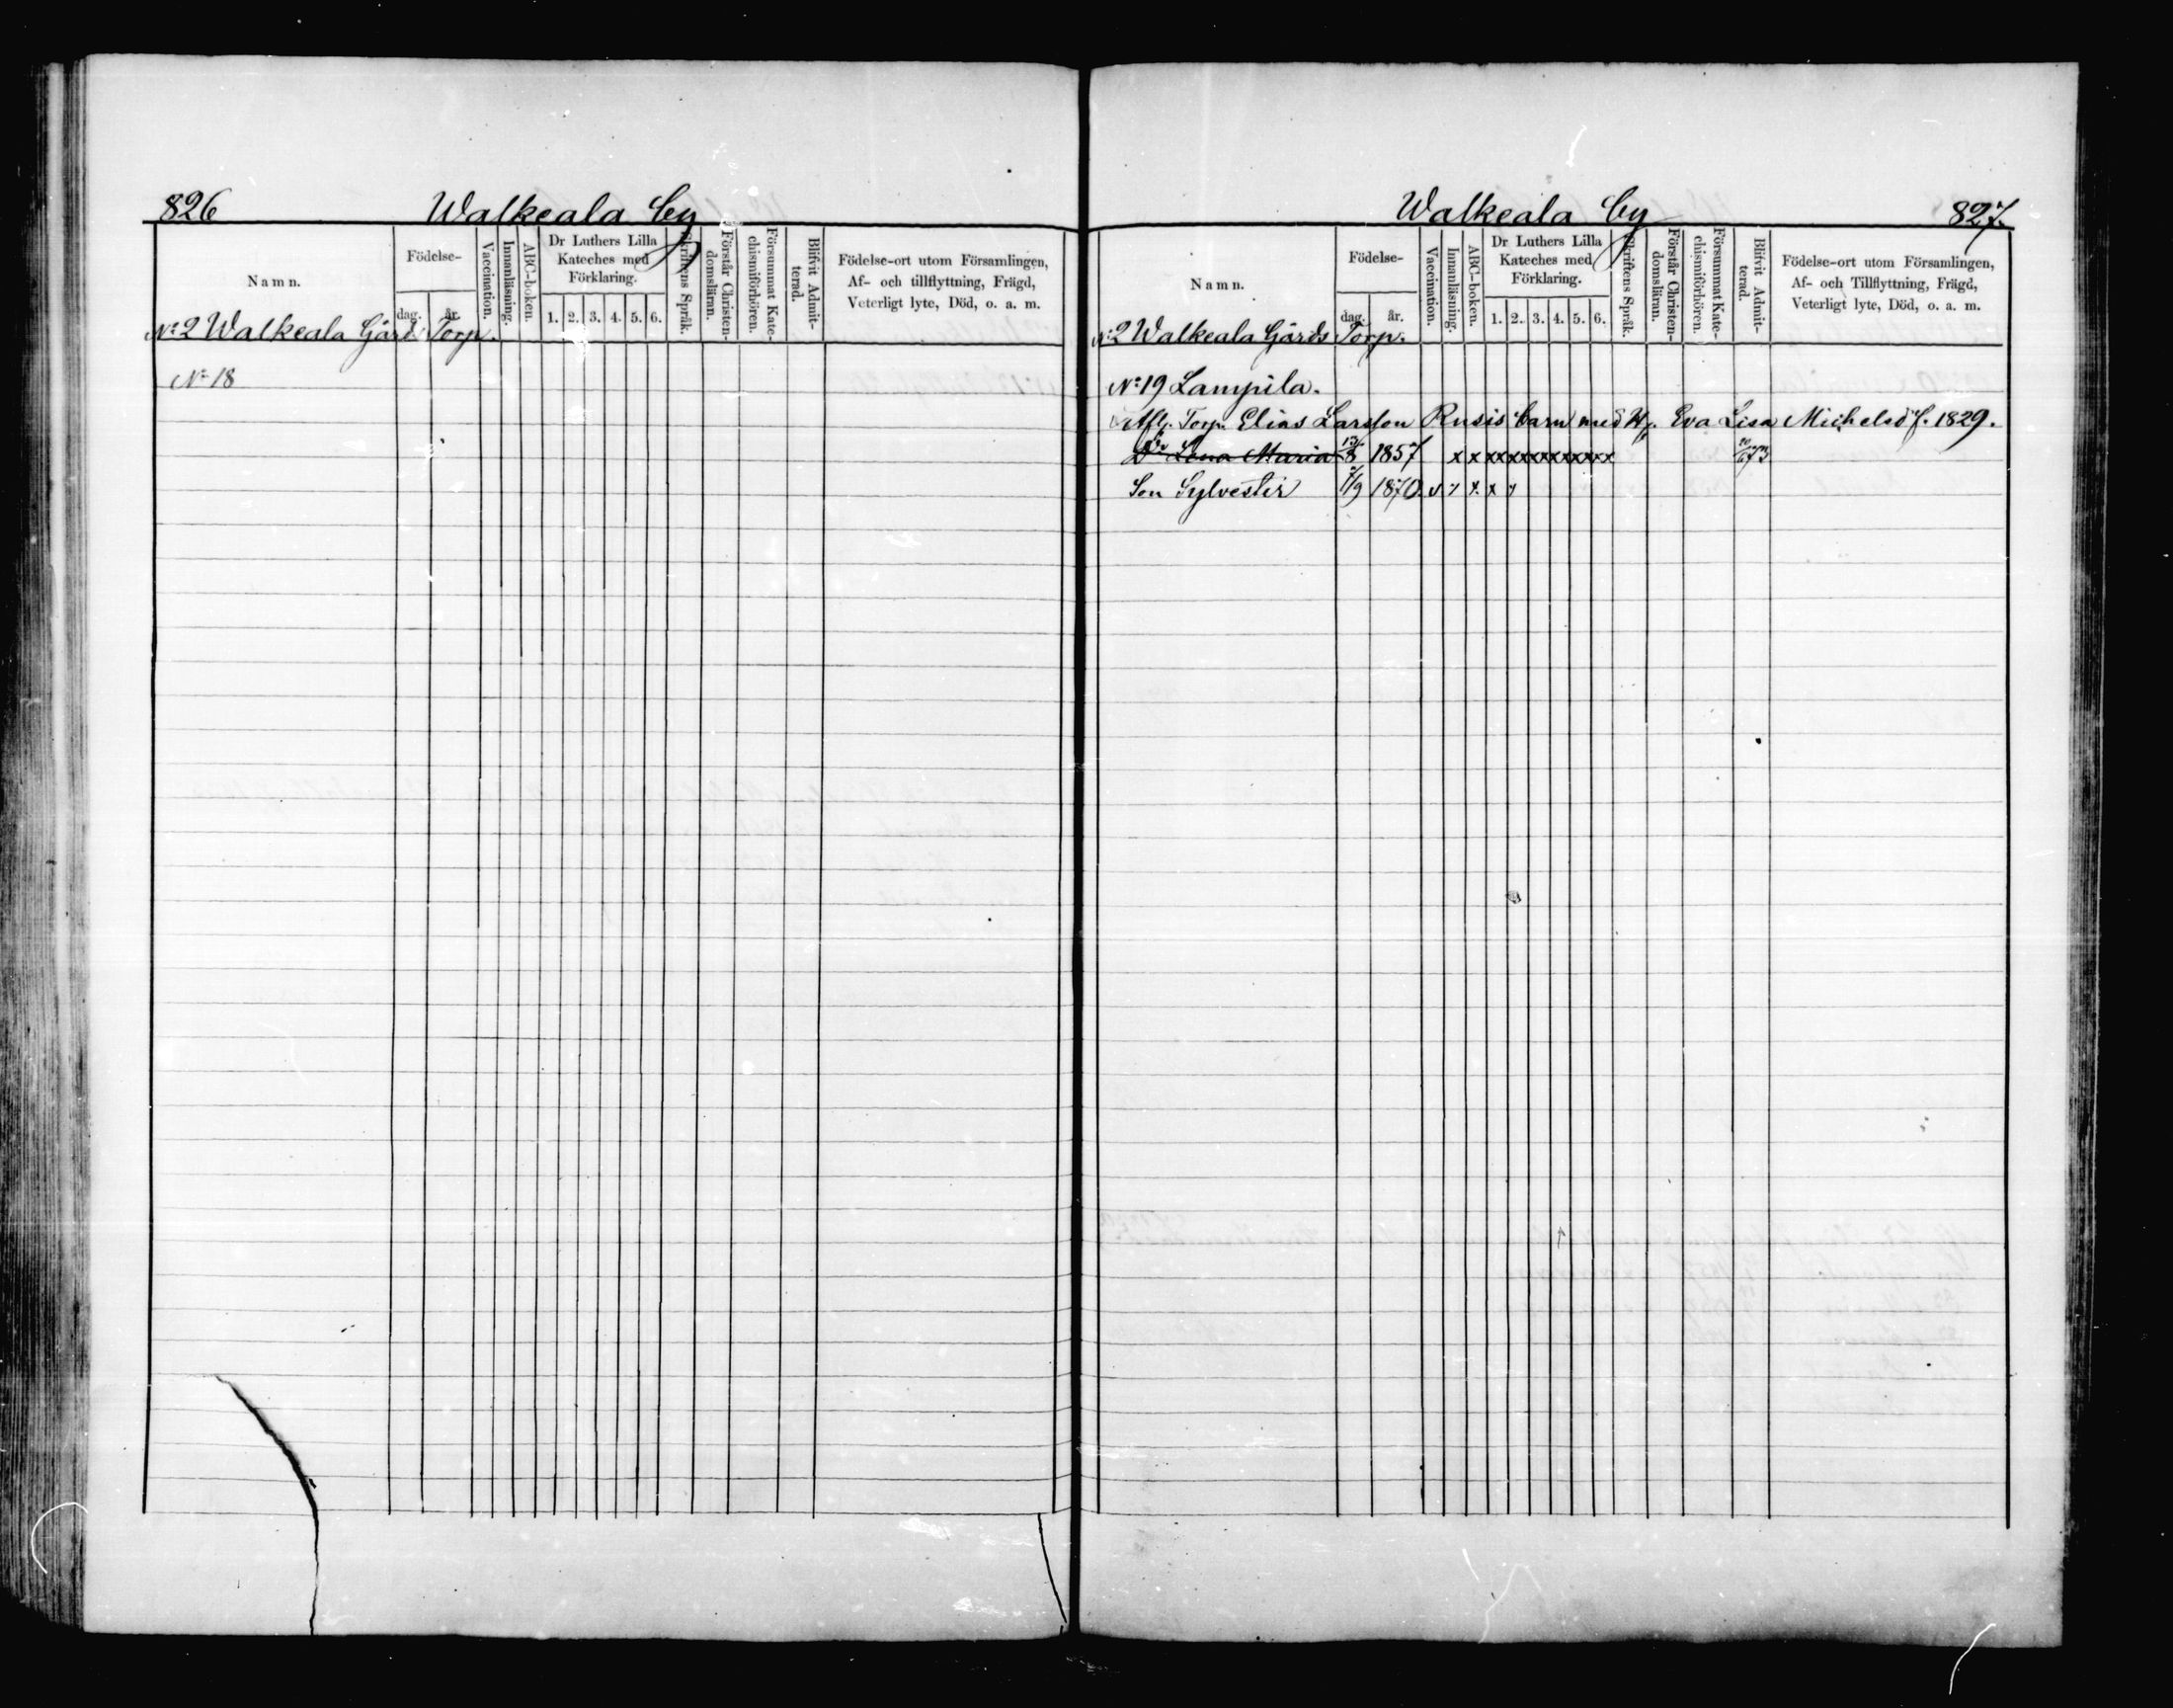 826 Walkeala by
Namn.
Födelse-
dag. år.
Vaccination.
Innanläsning.
ABC-boken.
Dr Luthers Lilla Kateches med Förklaring.
1. 2. 3. 4. 5. 6.
Skriftens Språk.
Förstår Christendomsläran.
Försummat Katechismiförhören.
Blifvit Admitterad.
Födelse-ort utom Församlingen,
Af- och tillflyttning, Frägd,
Veterligt lyte, Död, o. a. m.
No 2 Walkeala Gårds Torp.
No 18
Walkeala by 827.
Namn.
Födelse-
dag. år.
Vaccination.
Innanläsning.
ABC-boken.
Dr Luthers Lilla Kateches med Förklaring.
1. 2. 3. 4. 5. 6.
Skriftens Språk.
Förstår Christendomsläran.
Försummat Katechismiförhören.
Blifvit Admitterad.
Födelse-ort utom Församlingen,
Af- och Tillflyttning, Frägd,
Veterligt lyte, Död, o. a. m.
No 2 Walkeala Gårds Torp.
No 19 Lampila.
Afl. Torp. Elias Larsson Rusis barn med H. Eva Lisa Michelsd f. 1829.
Dr Lena Maria 1857 x x xxxxxxxxxxxx
Son Sylvester 1/9 1870